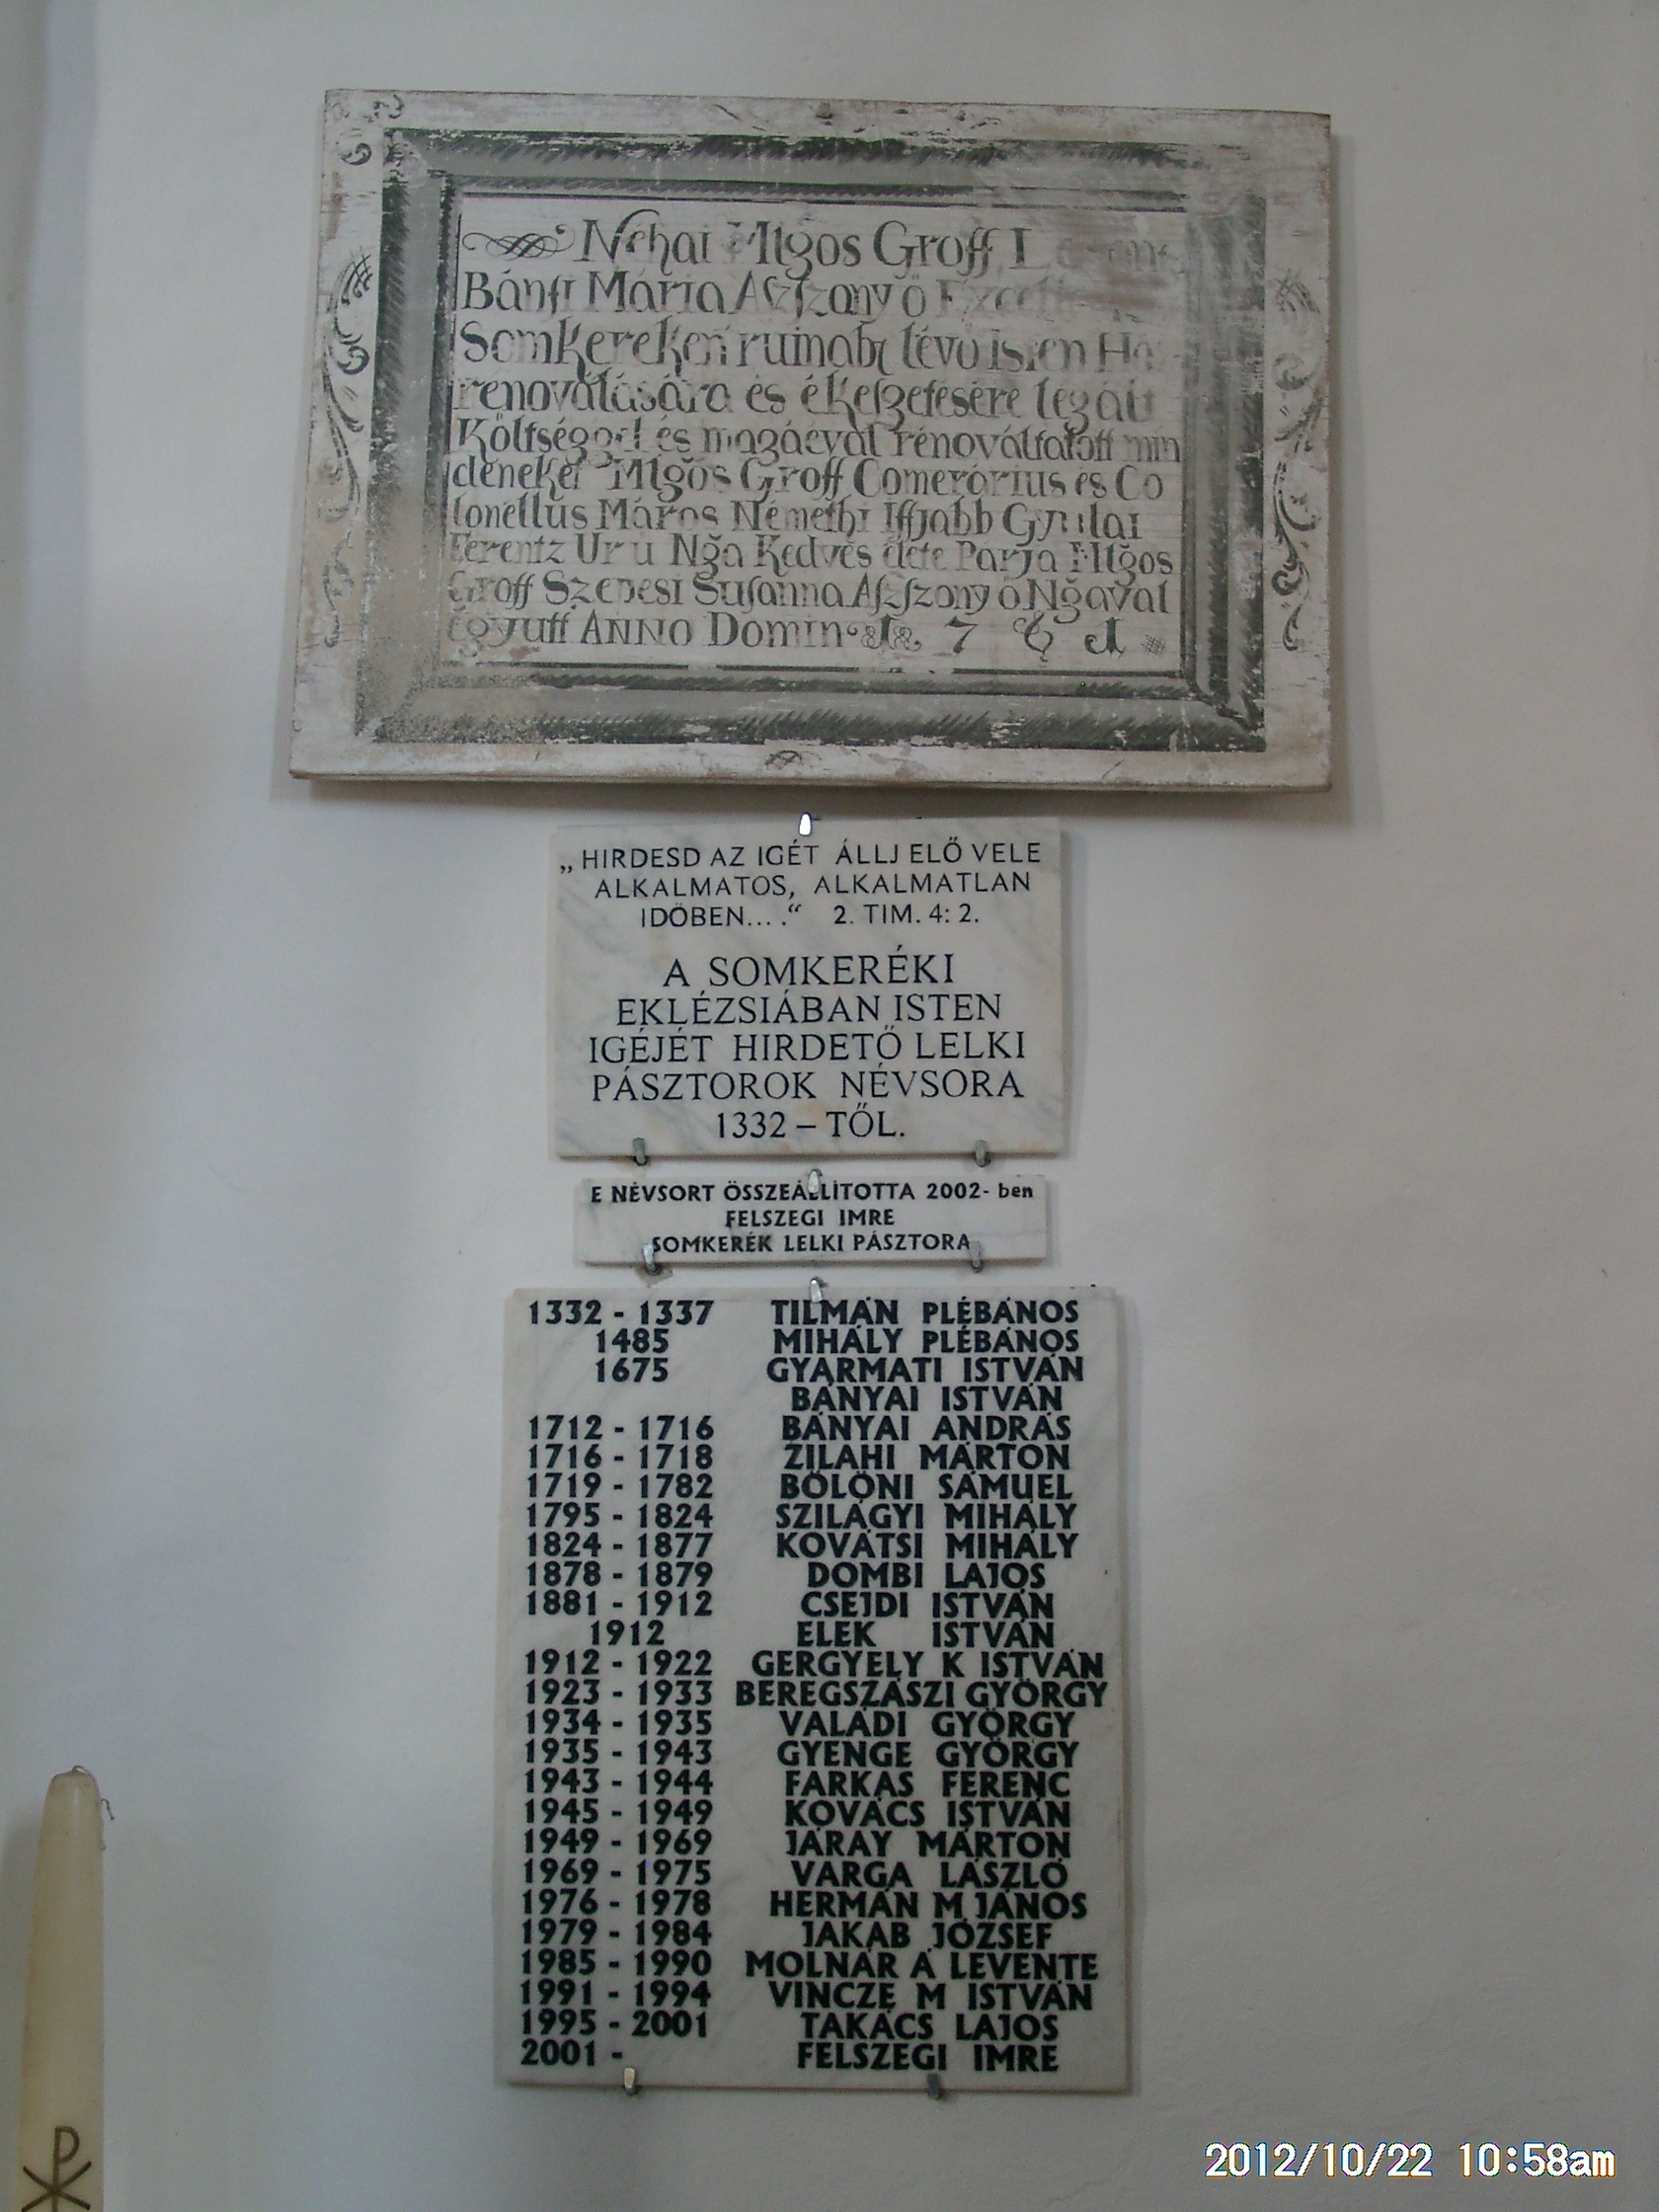 Nehai Mlgos Groff
Bánfi Mária Aſzſzony ő
Somkereken ruinabā lévő Isten
renoválására és ékeſzgetésére legált
Költséggel és magáéval rénováltatott min
deneket Mlgos Groff Comerárius és Co
lonellus Máros Némethi Iffjabb Gyulai
Ferentz Ur u Nğa Kedves élete Párja Mlgos
Groff Szepesi Susanna Aſzſzony ő Nğával
együtt ANNO Domin
„HIRDESD AZ IGÉT ÁLLJ ELŐ VELE
ALKALMATOS, ALKALMATLAN
IDŐBEN... .“ 2. TIM. 4: 2.
A SOMKERÉKI
EKLÉZSIÁBAN ISTEN
IGÉJÉT HIRDETŐ LELKI
PÁSZTOROK NÉVSORA
1332 – TŐL.
E NÉVSORT ÖSSZEÁLLÍTOTTA 2002- ben
FELSZEGI IMRE
SOMKERÉK LELKI PÁSZTORA
1332 - 1337 TILMÁN PLÉBÁNOS
1485 MIHÁLY PLÉBÁNOS
1675 GYARMATI ISTVÁN
BÁNYAI ISTVÁN
1712 - 1716 BÁNYAI ANDRÁS
1716 - 1718 ZILAHI MÁRTON
1719 - 1782 BÖLÖNI SÁMUEL
1795 - 1824 SZILÁGYI MIHÁLY
1824 - 1877 KOVÁTSI MIHÁLY
1878 - 1879 DOMBI LAJOS
1881 - 1912 CSEJDI ISTVÁN
1912 ELEK ISTVÁN
1912 - 1922 GERGYELY K ISTVÁN
1923 - 1933 BEREGSZÁSZI GYÖRGY
1934 - 1935 VALÁDI GYÖRGY
1935 - 1943 GYENGE GYÖRGY
1943 - 1944 FARKAS FERENC
1945 - 1949 KOVÁCS ISTVÁN
1949 - 1969 JÁRAY MÁRTON
1969 - 1975 VARGA LÁSZLÓ
1976 - 1978 HERMÁN M JÁNOS
1979 - 1984 JAKAB JÓZSEF
1985 - 1990 MOLNÁR Á LEVENTE
1991 - 1994 VINCZE M ISTVÁN
1995 - 2001 TAKÁCS LAJOS
2001 - FELSZEGI IMRE
2012/10/22 10:58am